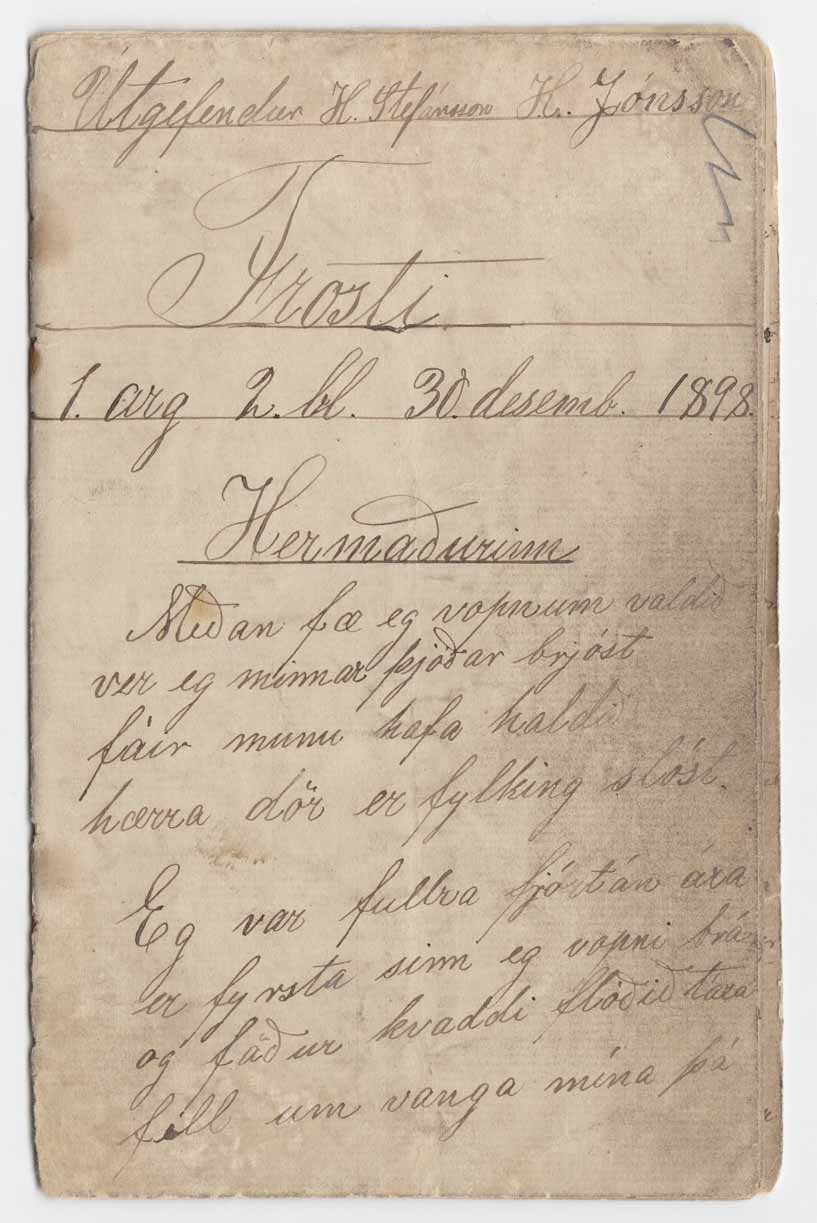 Útgefendur H. Stefánsson H. Jónsson
Frosti
1. arg 2. bl. 30. desemb. 1898.
Hermaðurinn
Meðan fæ eg vopnum valdið
ver eg minnar þjóðar brjóst
fáir munu hafa haldið
hærra dör er fylking slóst.
Eg var fullra fjórtán ára
er fyrsta sinn eg vopni brá
og föður kvaddi flóðið tára
féll um vanga mína þá